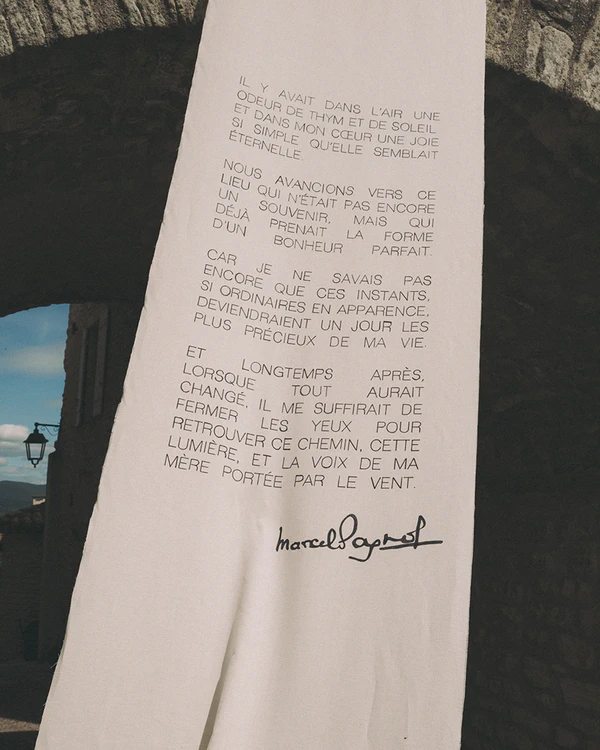 IL Y AVAIT DANS L'AIR UNE
ODEUR DE THYM ET DE SOLEIL
ET DANS MON CŒUR UNE JOIE
SI SIMPLE QU'ELLE SEMBLAIT
ÉTERNELLE.
NOUS AVANCIONS VERS CE
LIEU QUI N'ÉTAIT PAS ENCORE
UN SOUVENIR, MAIS QUI
DÉJÀ PRENAIT LA FORME
D'UN BONHEUR PARFAIT.
CAR JE NE SAVAIS PAS
ENCORE QUE CES INSTANTS,
SI ORDINAIRES EN APPARENCE,
DEVIENDRAIENT UN JOUR LES
PLUS PRÉCIEUX DE MA VIE.
ET LONGTEMPS APRÈS,
LORSQUE TOUT AURAIT
CHANGÉ, IL ME SUFFIRAIT DE
FERMER LES YEUX POUR
RETROUVER CE CHEMIN, CETTE
LUMIÈRE, ET LA VOIX DE MA
MÈRE PORTÉE PAR LE VENT.
Marcel Pagnol